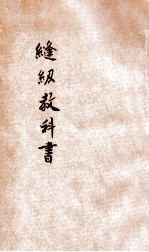 縫級教科書